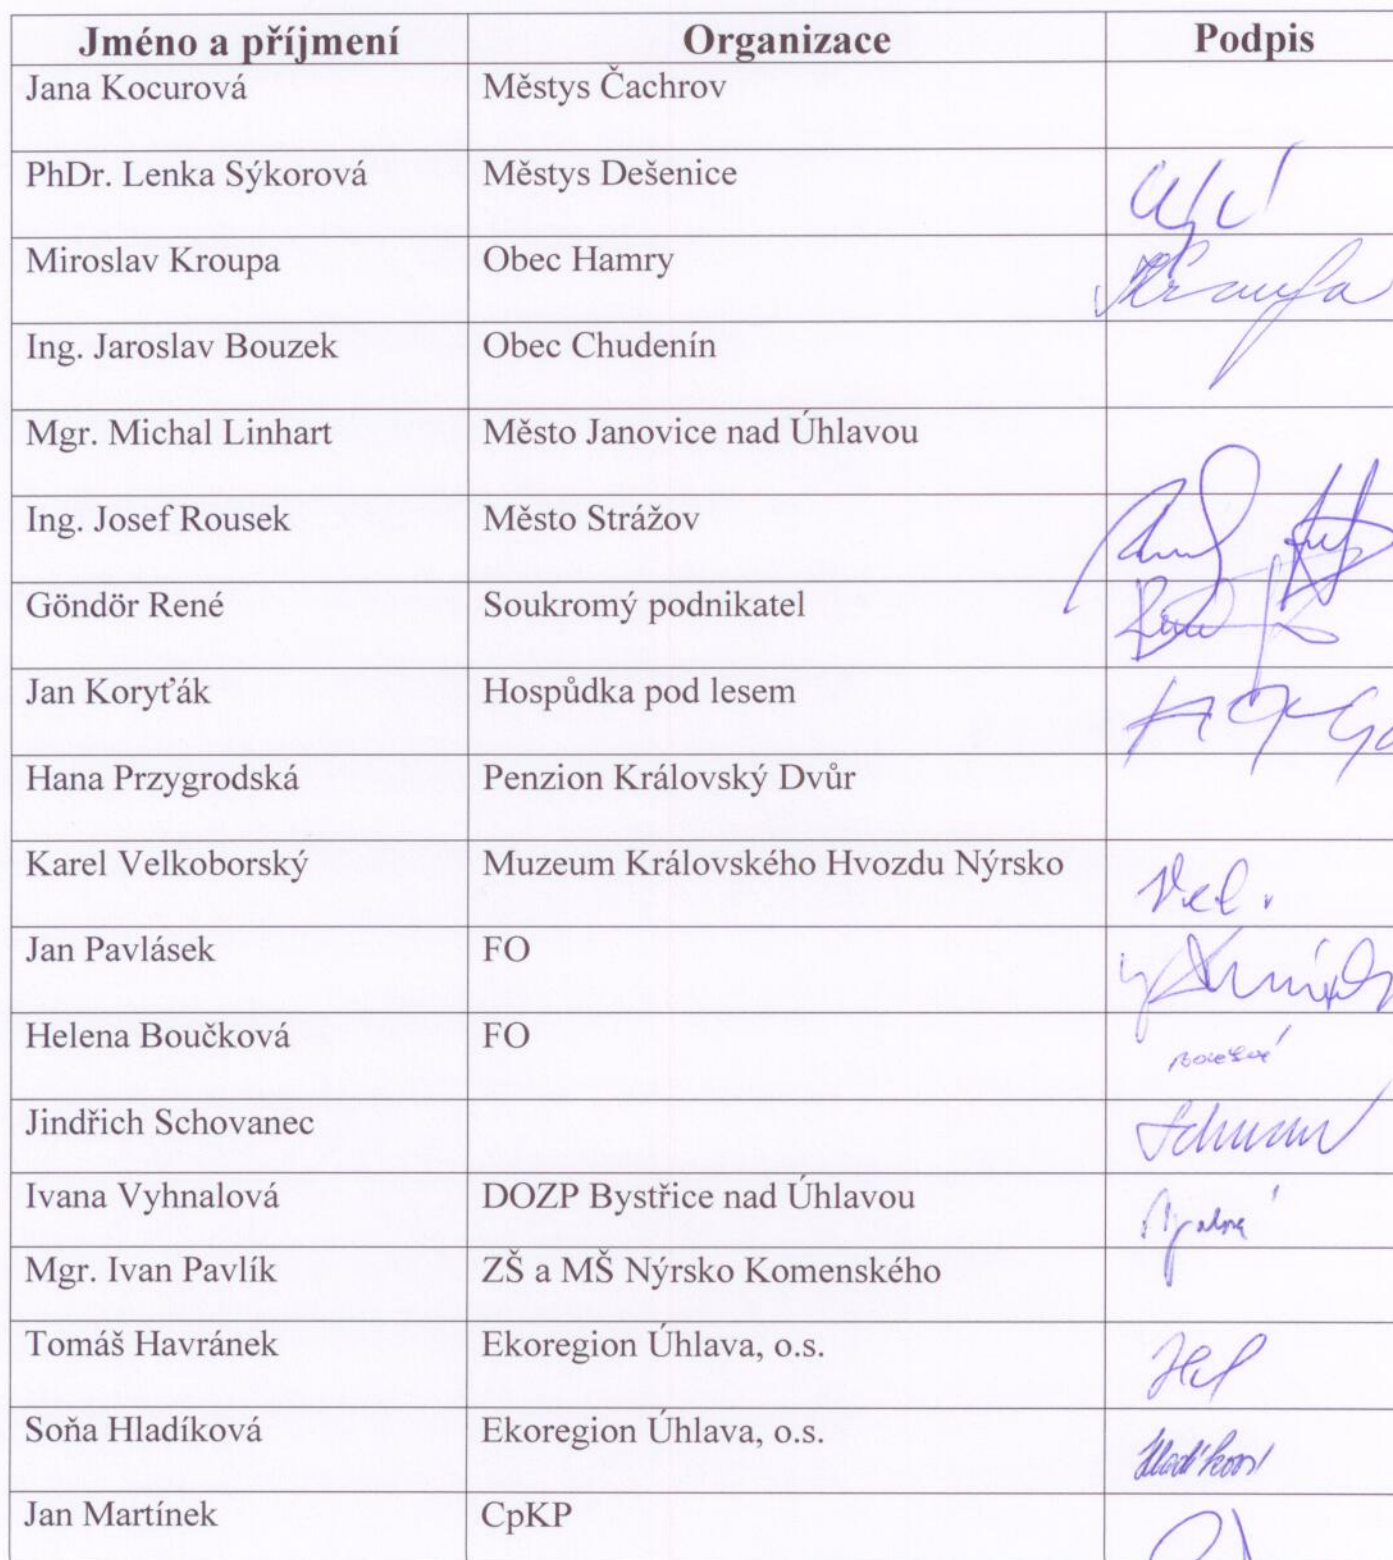 Jméno a příjmení Organizace Podpis
Jana Kocurová Městys Čachrov
PhDr. Lenka Sýkorová Městys Dešenice
Miroslav Kroupa Obec Hamry Kroupa
Ing. Jaroslav Bouzek Obec Chudenín
Mgr. Michal Linhart Město Janovice nad Úhlavou
Ing. Josef Rousek Město Strážov
Göndör René Soukromý podnikatel
Jan Koryťák Hospůdka pod lesem
Hana Przygrodská Penzion Královský Dvůr
Karel Velkoborský Muzeum Královského Hvozdu Nýrsko Vel.
Jan Pavlásek FO
Helena Boučková FO
Jindřich Schovanec
Ivana Vyhnalová DOZP Bystřice nad Úhlavou
Mgr. Ivan Pavlík ZŠ a MŠ Nýrsko Komenského
Tomáš Havránek Ekoregion Úhlava, o.s.
Soňa Hladíková Ekoregion Úhlava, o.s. Hladíková
Jan Martínek CpKP